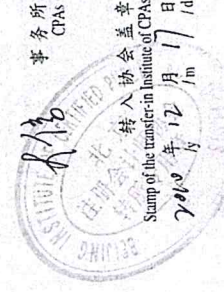 事务所
CPAs
转入协会盖章
Stamp of the transfer-in Institute of CPAs
2010 年 12 月 17 日
/y /m /d
BEIJING INSTITUTE
CERTIFIED
北京
注册会计师